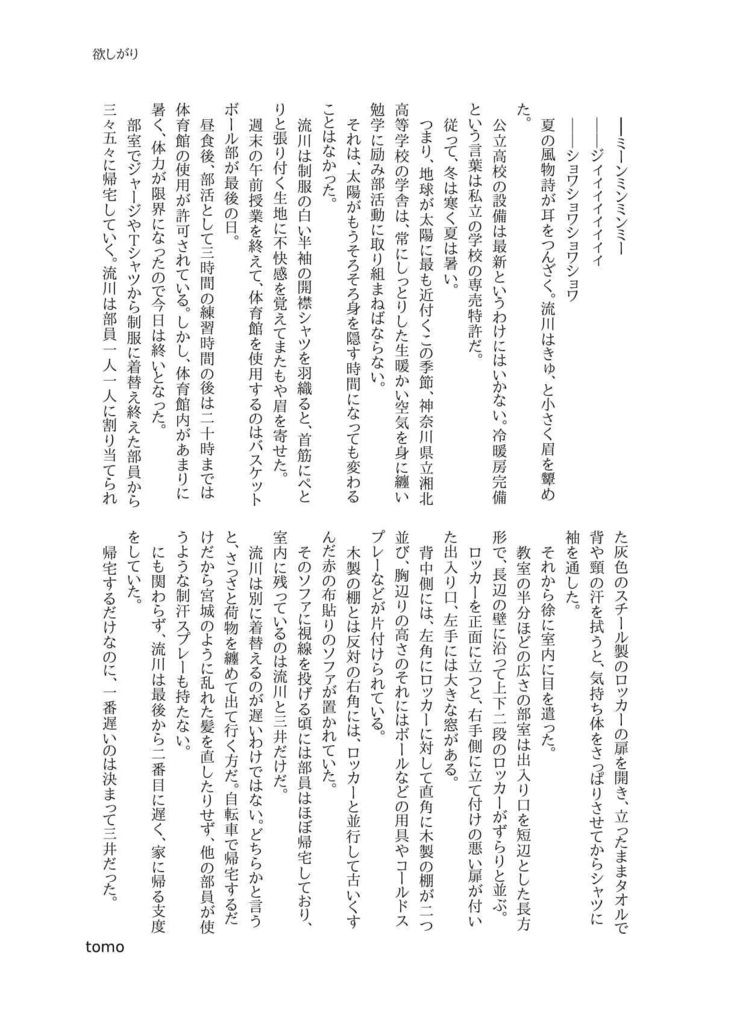 欲しがり
――ミーンミンミンミー
――ジィイイイイイイ
――ショワショワショワショワ
夏の風物詩が耳をつんざく。流川はきゅ、と小さく眉を顰め
た。
公立高校の設備は最新というわけにはいかない。冷暖房完備
という言葉は私立の学校の専売特許だ。
従って、冬は寒く夏は暑い。
つまり、地球が太陽に最も近付くこの季節、神奈川県立湘北
高等学校の学舎は、常にしっとりした生暖かい空気を身に纏い
勉学に励み部活動に取り組まねばならない。
それは、太陽がもうそろそろ身を隠す時間になっても変わる
ことはなかった。
流川は制服の白い半袖の開襟シャツを羽織ると、首筋にぺと
りと張り付く生地に不快感を覚えてまたもや眉を寄せた。
週末の午前授業を終えて、体育館を使用するのはバスケット
ボール部が最後の日。
昼食後、部活として三時間の練習時間の後は二十時までは
体育館の使用が許可されている。しかし、体育館内があまりに
暑く、体力が限界になったので今日は終いとなった。
部室でジャージやTシャツから制服に着替え終えた部員から
三々五々に帰宅していく。流川は部員一人一人に割り当てられ
た灰色のスチール製のロッカーの扉を開き、立ったままタオルで
背や頸の汗を拭うと、気持ち体をさっぱりさせてからシャツに
袖を通した。
それから徐に室内に目を遣った。
教室の半分ほどの広さの部室は出入り口を短辺とした長方
形で、長辺の壁に沿って上下二段のロッカーがずらりと並ぶ。
ロッカーを正面に立つと、右手側に立て付けの悪い扉が付い
た出入り口、左手には大きな窓がある。
背中側には、左角にロッカーに対して直角に木製の棚が二つ
並び、胸辺りの高さのそれにはボールなどの用具やコールドス
プレーなどが片付けられている。
木製の棚とは反対の右角には、ロッカーと並行して古いくす
んだ赤の布貼りのソファが置かれていた。
そのソファに視線を投げる頃には部員はほぼ帰宅しており、
室内に残っているのは流川と三井だけだ。
流川は別に着替えるのが遅いわけではない。どちらかと言う
と、さっさと荷物を纏めて出て行く方だ。自転車で帰宅するだ
けだから宮城のように乱れた髪を直したりせず、他の部員が使
うような制汗スプレーも持たない。
にも関わらず、流川は最後から二番目に遅く、家に帰る支度
をしていた。
帰宅するだけなのに、一番遅いのは決まって三井だった。
tomo